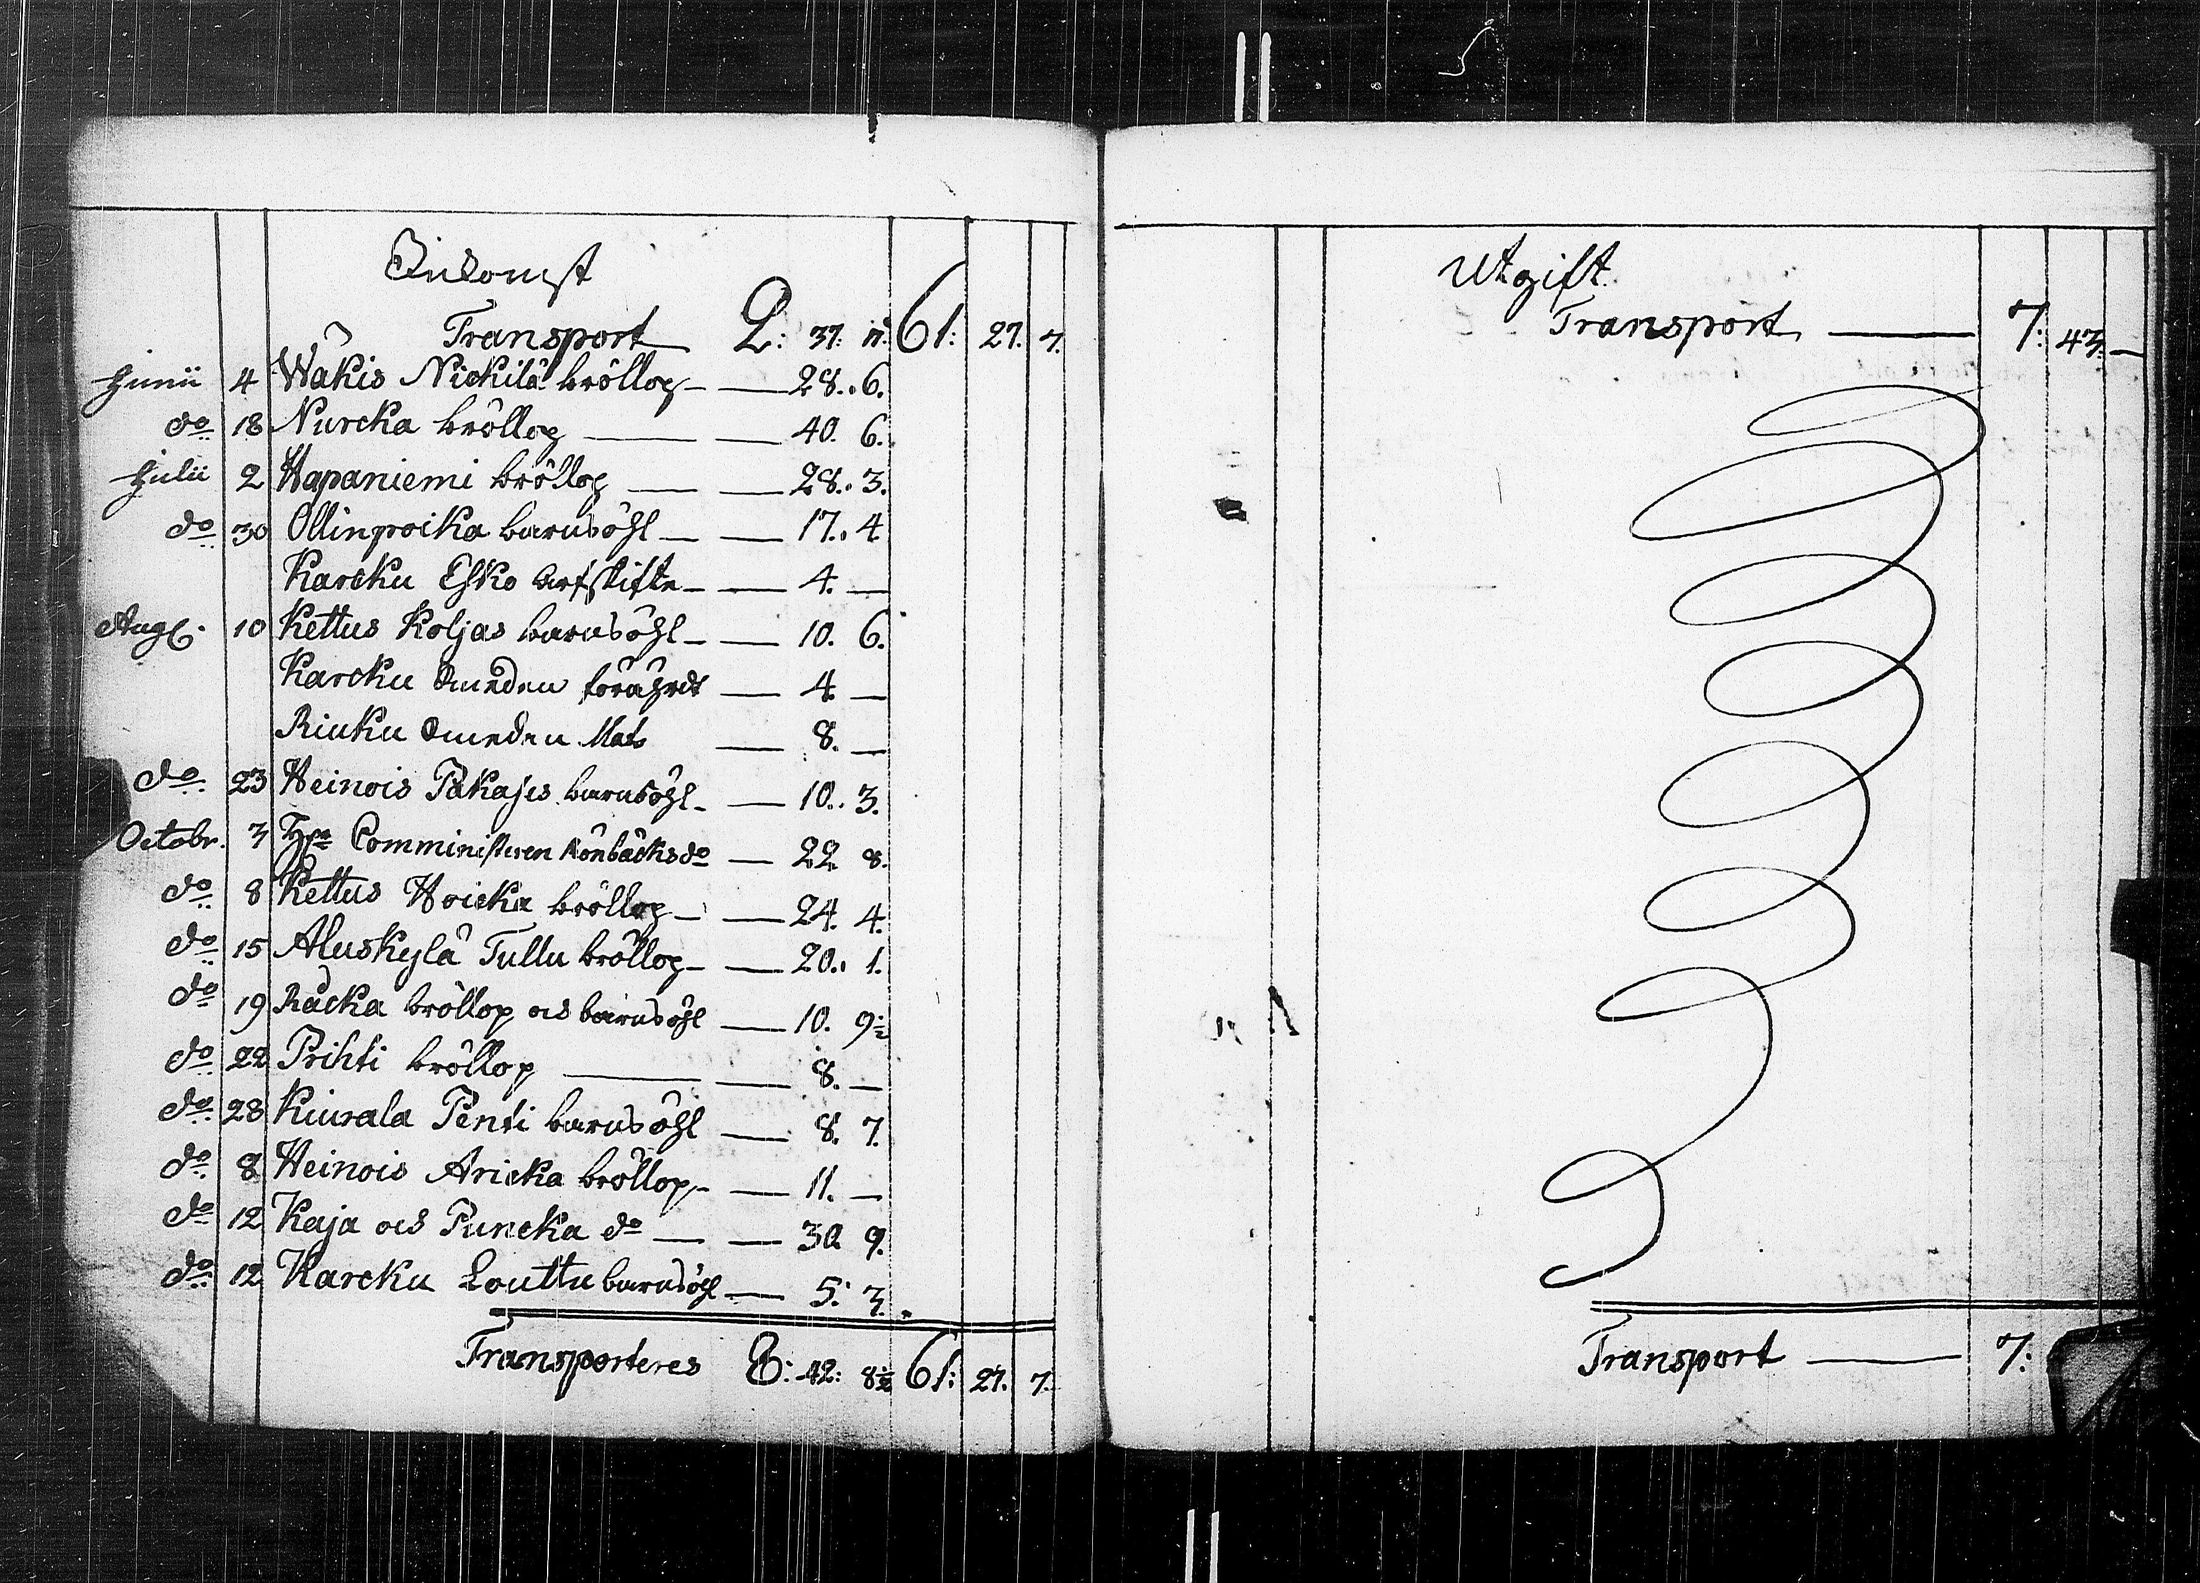 Inkomst
Transport 2: 37: 11. 61: 27. 7.
Junii 4 Wäkis Nickilä bröllop 28. 6.
do 18 Nurcka bröllop 40. 6.
Julii 2 Hapaniemi bröllop 28. 3.
do 30 Ollinpoika barnsöhl 17. 4
Karcku Esko arfskifte 4. —
Aug. 10 Kettus Koljas barnsöhl 10. 6.
Karcku Smeden förährdt 4 —
Riuku Smeden Mats 8. —
do 23 Heinois Pakajes barnsöhl 10. 3.
Octobr. 3 Hr Comministeren Könbäcks do 22 8.
do 8 Kettus Hoicka bröllop 24. 4.
do 15 Aluskylä Tullu bröllop 20. 1.
do 19 Räcka bröllop och barnsöhl 10. 9½
do 22 Prihti bröllop 8. —
do 28 Kiurala Penti barnsöhl 8. 7.
do 8 Heinois Aricka bröllop 11. —
do 12 Kaja och Puncka do 30 9.
do 12 Karcku Louttu barnsöhl 5. 3.
Transporteres 8: 42: 8½ 61: 27. 7.
Utgift.
Transport 7: 43. —
Transport 7: